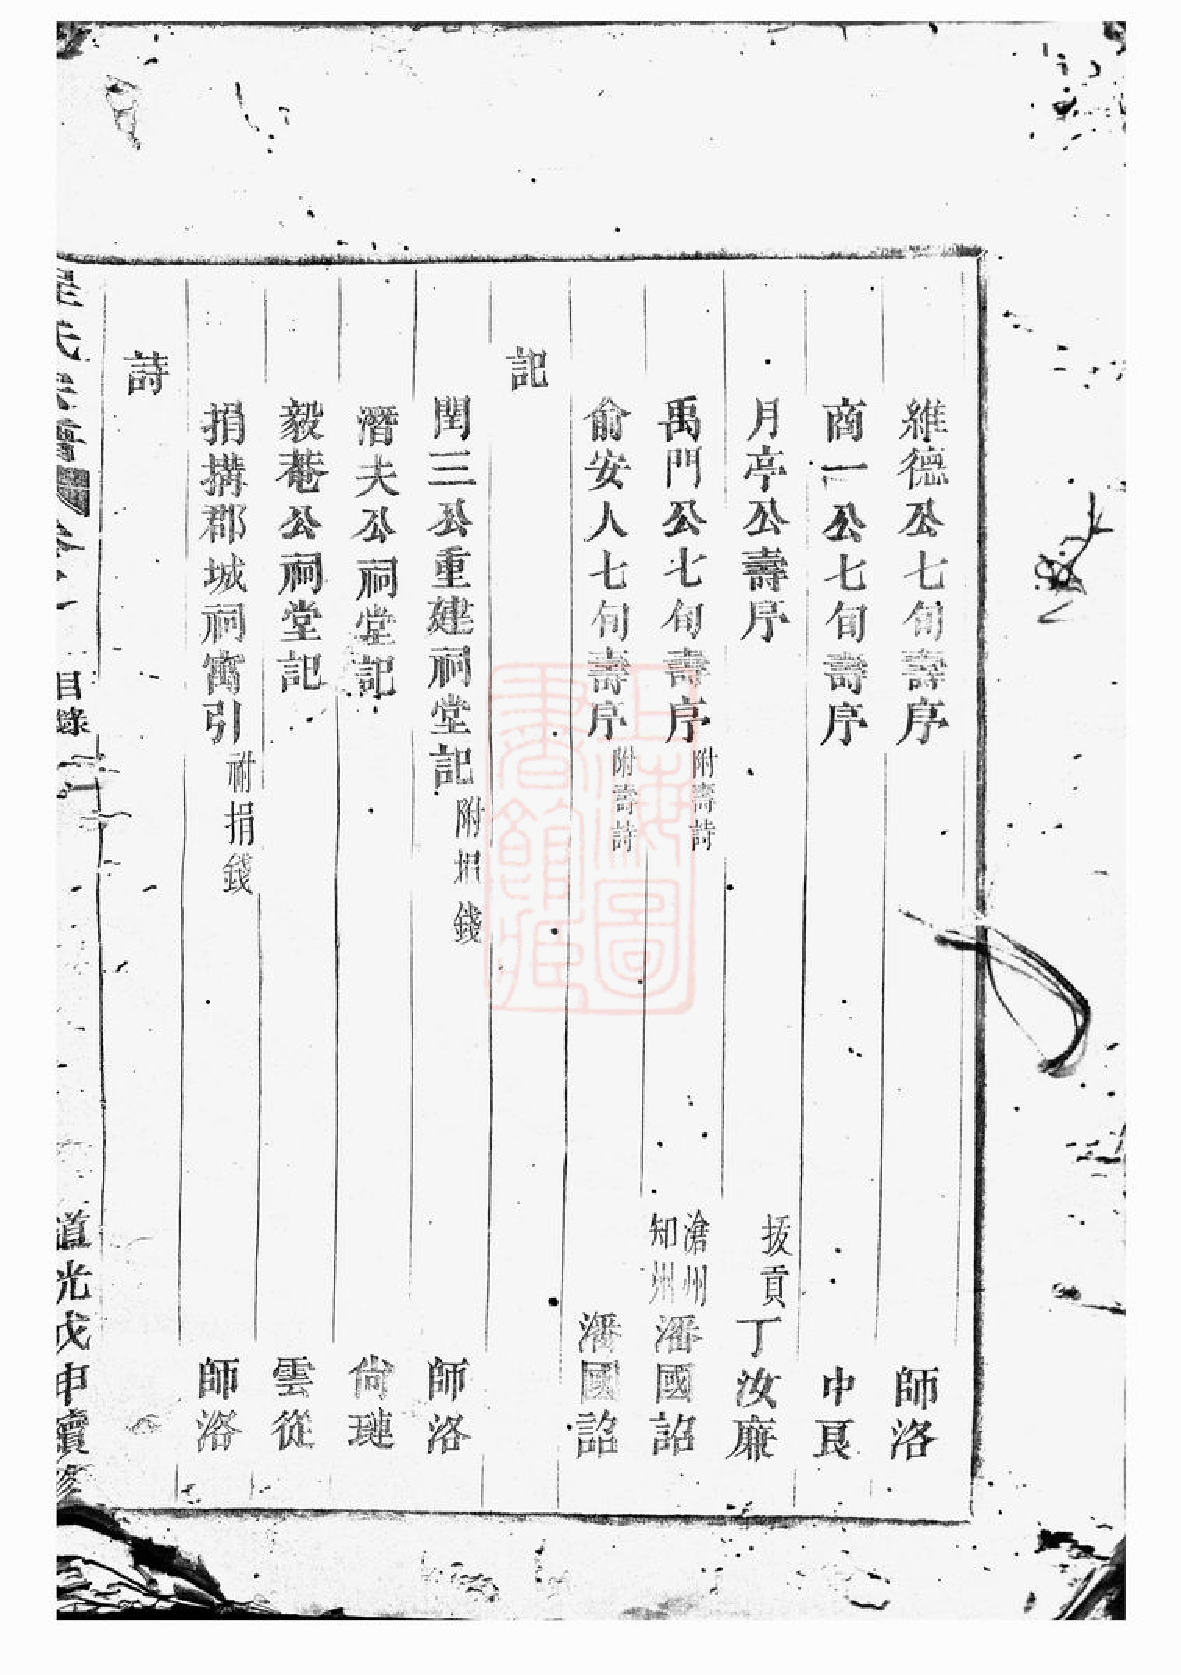 維德公七旬壽序 師洛
商一公七旬壽序 中艮
月亭公壽序 拔貢 丁汝廉
禹門公七旬壽序 附壽詩 滄州知州 潘國詔
俞安人七旬壽序 附壽詩 潘國詔
記
閏三公重建祠堂記 附捐錢 師洛
潛夫公祠堂記 尙璉
毅菴公祠堂記 雲從
捐搆郡城祠寓引 附捐錢 師洛
詩
氏宗譜 目錄 道光戊申續修
上海圖書館藏